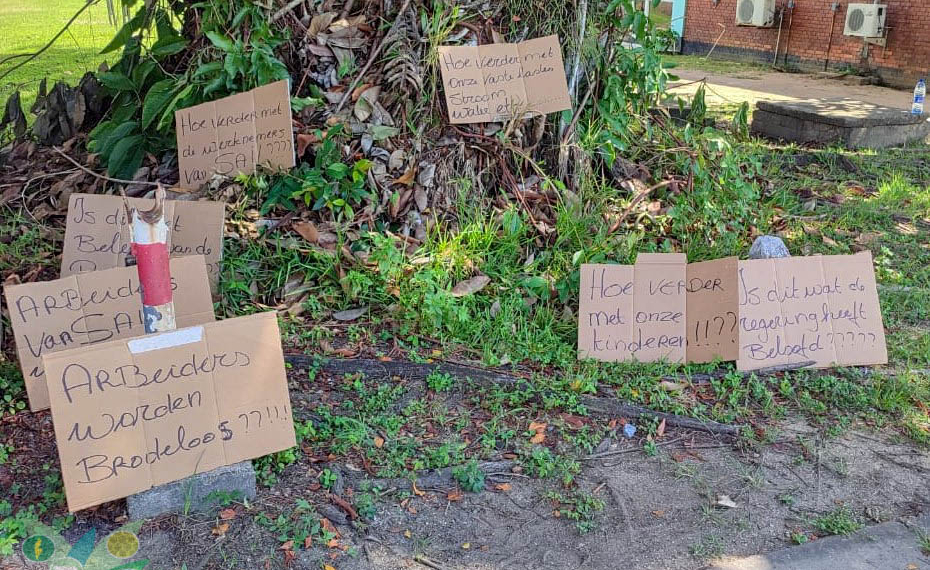 Hoe verder met
onze vaste Lasten
Stroom
water etc ?????
Hoe verder met
de werknemers
van SAI ????
Is dit
Beleid van de
ARBeiders
van SAI
ARBeiders
worden
Brodeloos ??!!!
Hoe verder
met onze
kinderen !!??
Is dit wat de
regering heeft
Beloofd ?????